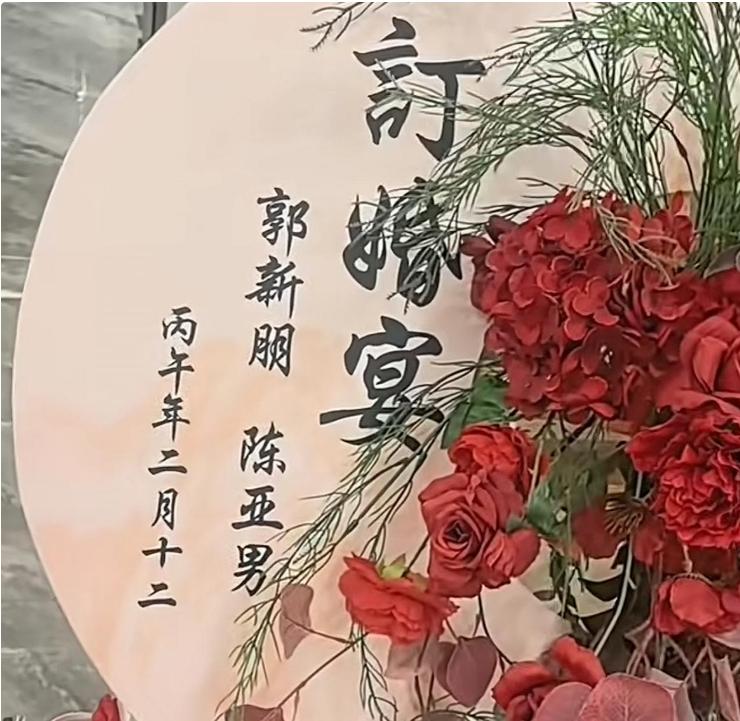 訂婚宴
郭新朋 陈亚男
丙午年二月十二